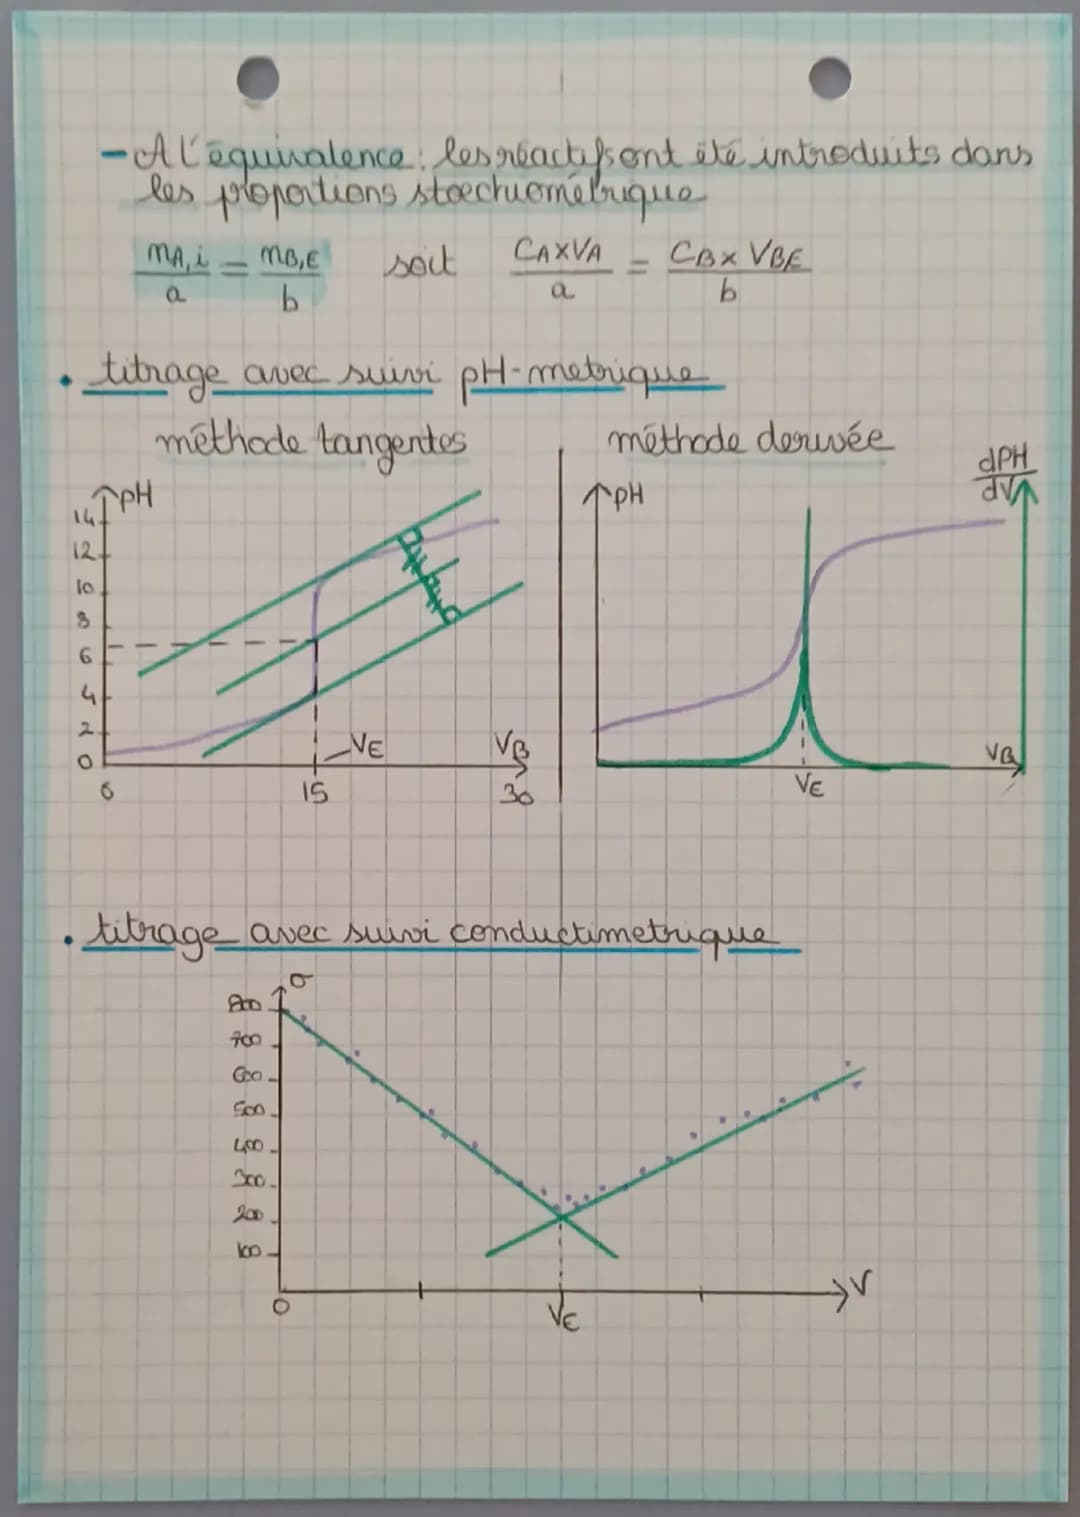 - A l'équivalence : les réactifs ont été introduits dans
les proportions stoechiométrique
nA,i/a = nB,E/b soit CA×VA/a = CB×VBE/b
• titrage avec suivi pH-metrique
méthode tangentes
méthode derivée
pH
14
12
10
8
6
4
2
0
0
15
30
VE
VB
pH
dPH/dV
VE
VB
• titrage avec suivi conductimetrique
σ
800
700
600
500
400
300
200
100
0
VE
V